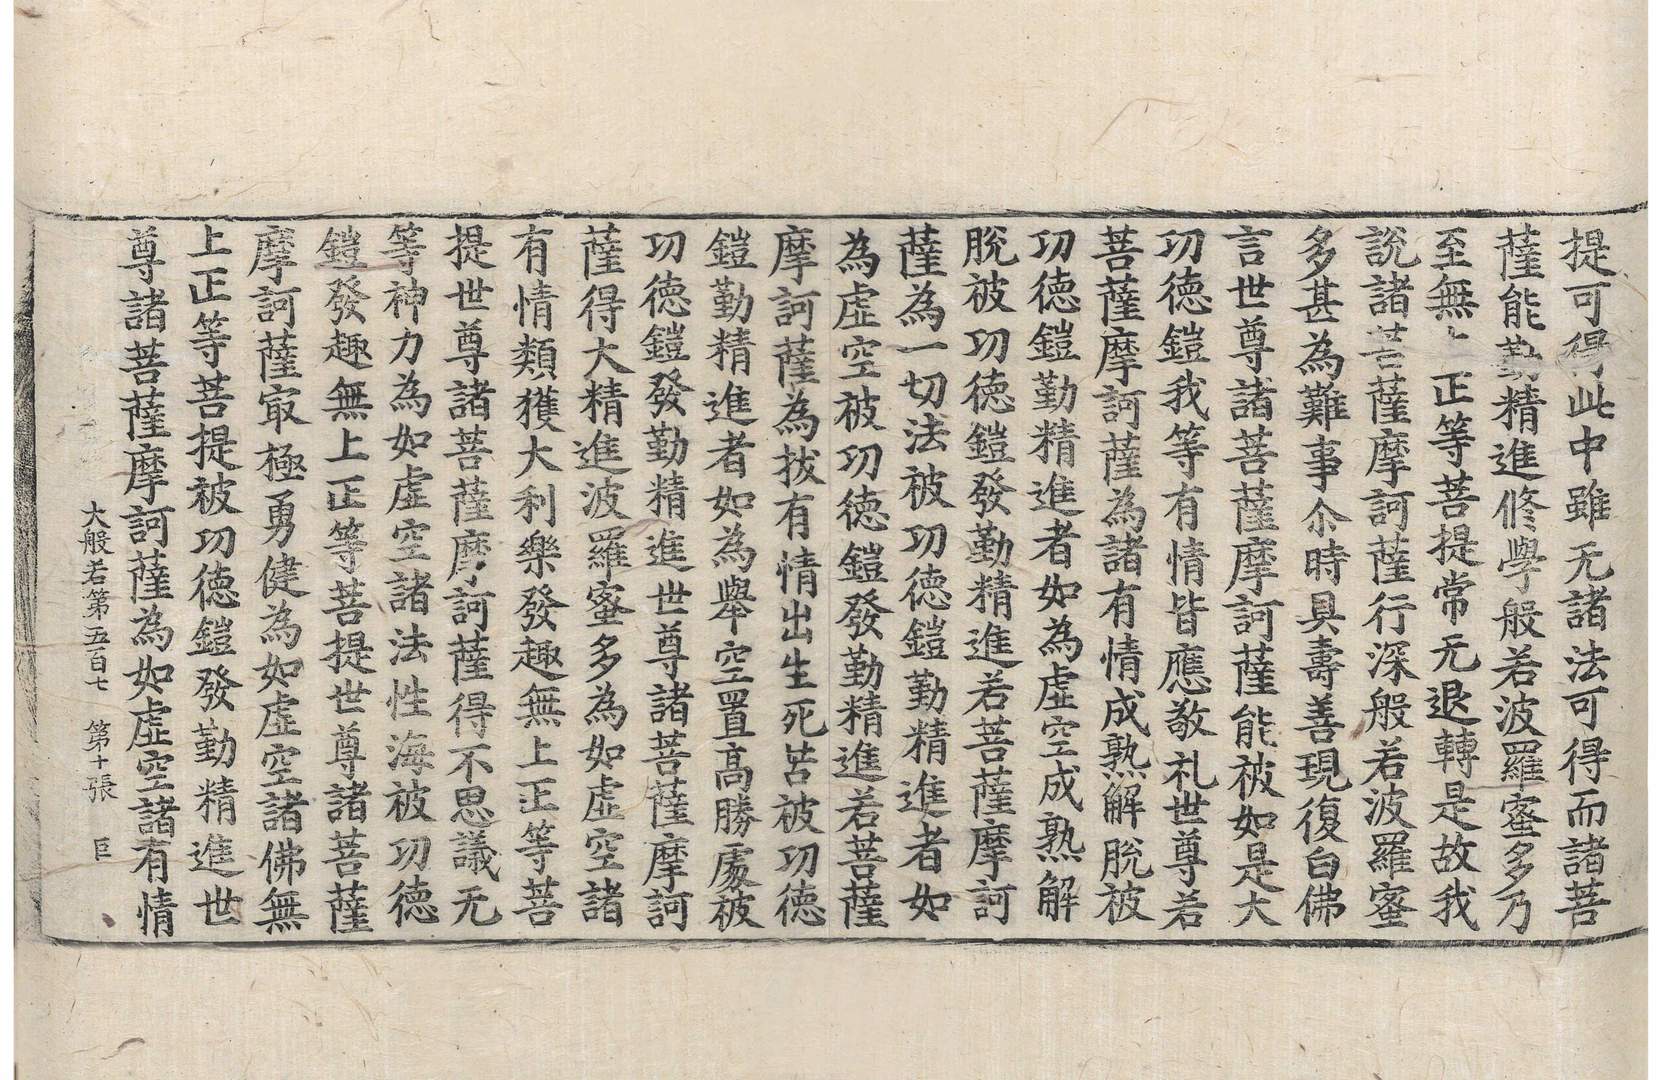 提可得此中雖无諸法可得而諸菩
薩能勤精進修學般若波羅蜜多乃
至無上正等菩提常无退轉是故我
說諸菩薩摩訶薩行深般若波羅蜜
多甚為難事尒時具壽善現復白佛
言世尊諸菩薩摩訶薩能被如是大
功徳鎧我等有情皆應敬礼世尊若
菩薩摩訶薩為諸有情成熟解脫被
功徳鎧勤精進者如為虛空成熟解
脫被功徳鎧發勤精進若菩薩摩訶
薩為一切法被功徳鎧勤精進者如
為虛空被功徳鎧發勤精進若菩薩
摩訶薩為拔有情出生死苦被功徳
鎧勤精進者如為舉空置高勝處被
功徳鎧發勤精進世尊諸菩薩摩訶
薩得大精進波羅蜜多為如虛空諸
有情類獲大利樂發趣無上正等菩
提世尊諸菩薩摩訶薩得不思議无
等神力為如虛空諸法性海被功徳
鎧發趣無上正等菩提世尊諸菩薩
摩訶薩㝡極勇健為如虛空諸佛無
上正等菩提被功徳鎧發勤精進世
尊諸菩薩摩訶薩為如虛空諸有情
大般若第五百七 第十張 巨